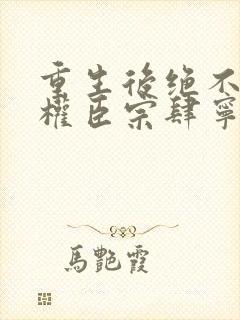 重生後绝不
權臣宗肆寧
馬艷霞